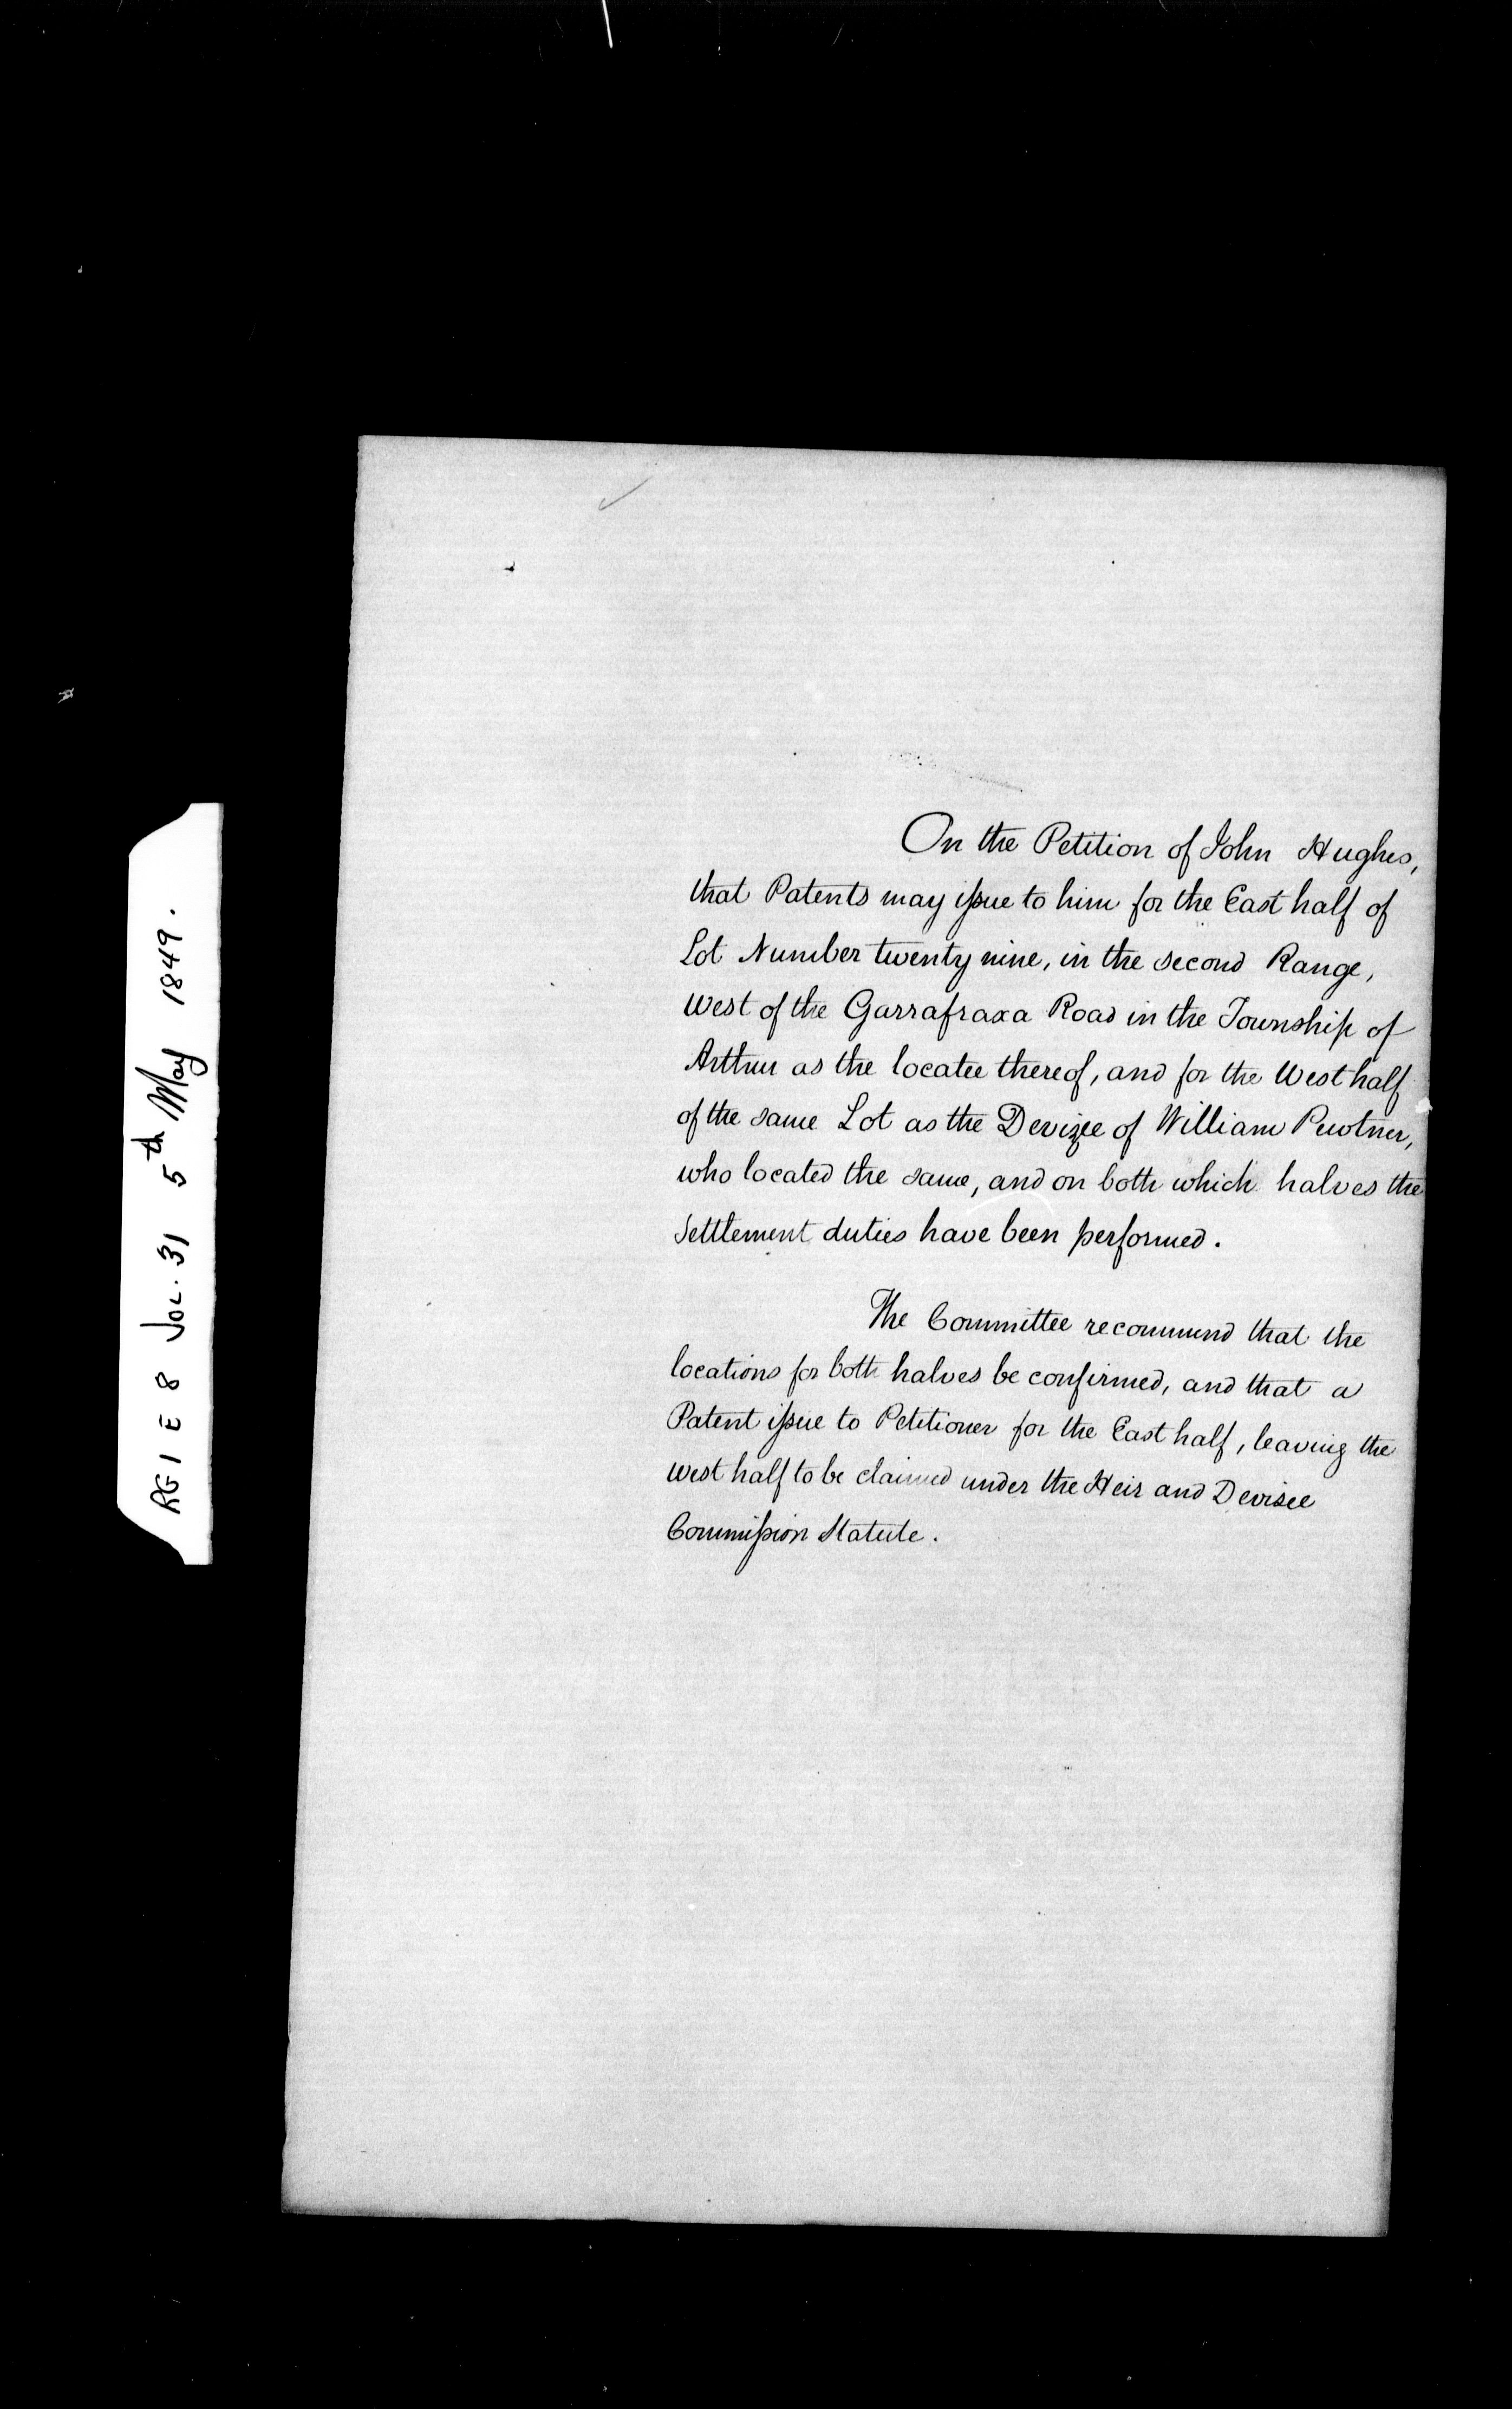 RG 1 E 8 Vol. 31 5th May 1849.
On the Petition of John Hughes,
that Patents may issue to him for the East half of
Lot Number twenty nine, in the second Range,
West of the Garrafraxa Road in the Township of
Arthur as the locatee thereof, and for the West half
of the same Lot as the Devizee of William Pewtner,
who located the same, and on both which halves the
Settlement duties have been performed.
The Committee recommend that the
locations for both halves be confirmed, and that a
Patent issue to Petitioner for the East half, leaving the
West half to be claimed under the Heir and Devisee
Commission Statute.